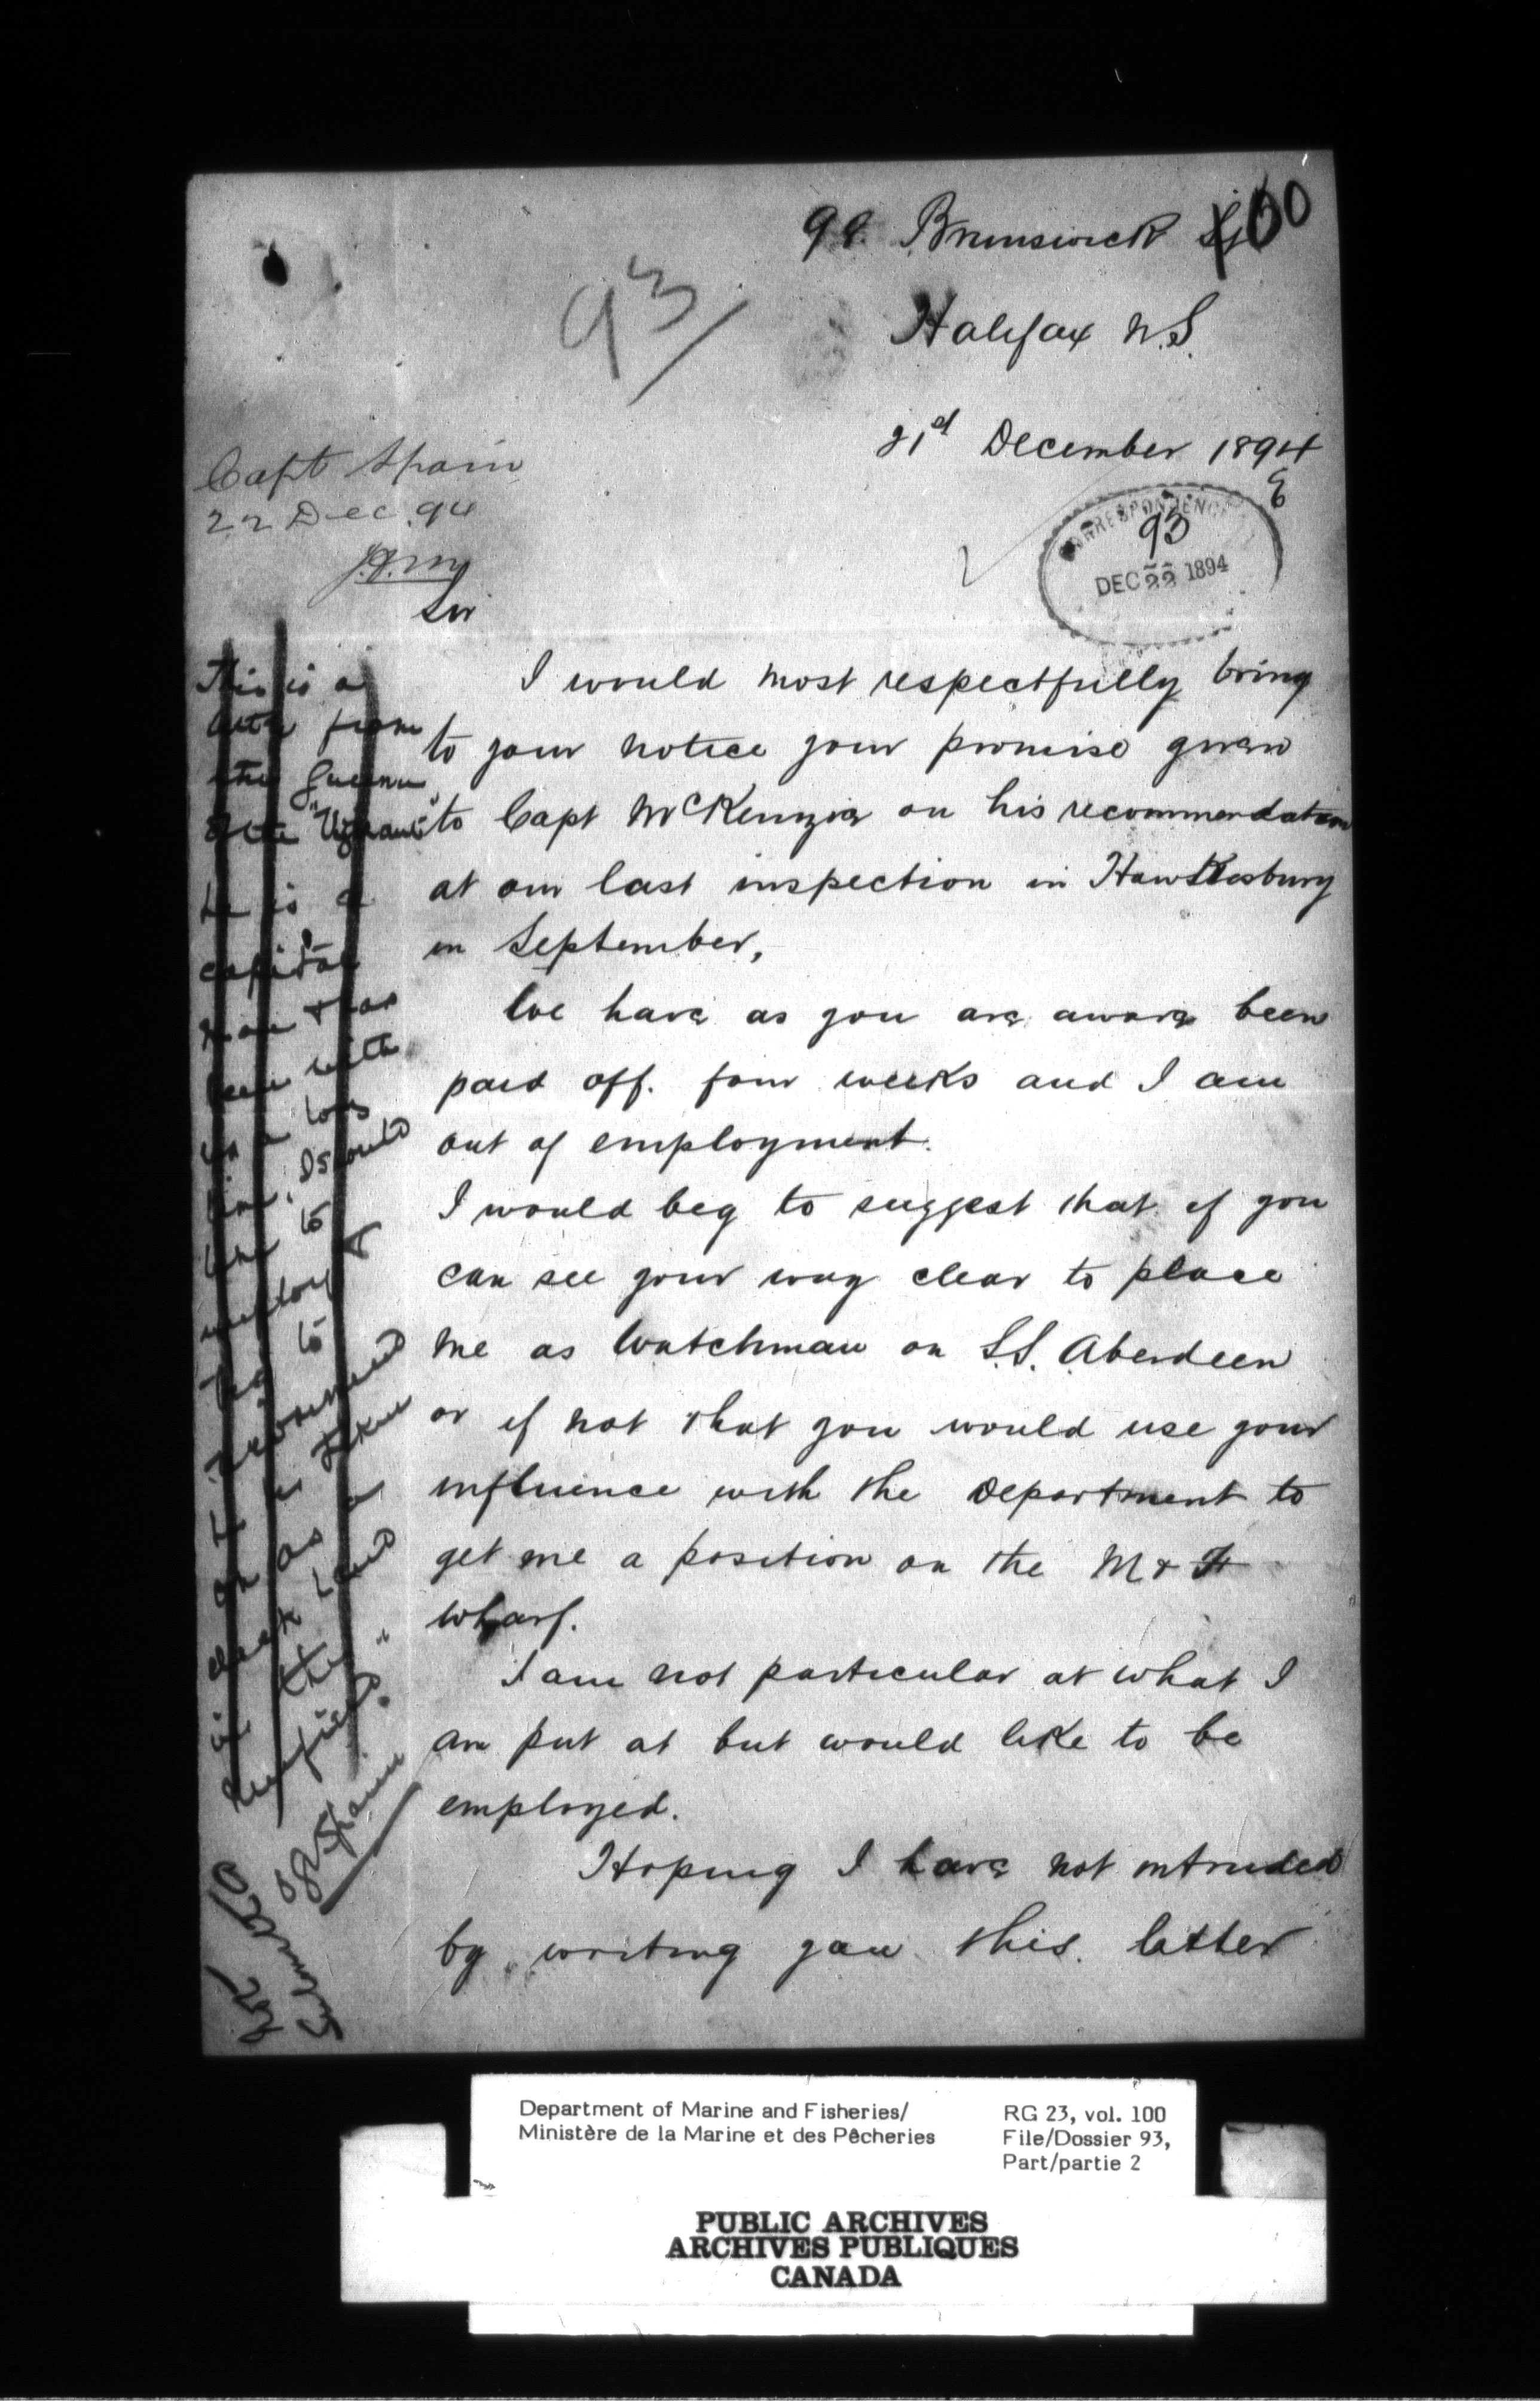 98 Brunswick St
100
Halifax N.S.
93/
21st December 1894
E
Capt Spain
22 Dec. 94
CORRESPONDENCE
93
DEC 22 1894
Sir
I would most respectfully bring
to your notice your promise given
to Capt McKenzie on his recommendation
at our last inspection in Hawkesbury
in September,
We have as you are aware been
paid off. four weeks and I am
out of employment.
I would beg to suggest that if you
can see your way clear to place
me as Watchman on S.S. Aberdeen
or if not that you would use your
influence with the Department to
get me a position on the M & F
wharf.
I am not particular at what I
am put at but would like to be
employed.
Hoping I have not intruded
by writing you this. letter
This is a
letter from
the
of the "Vigilant"
He is a
capital
man & has
been with
us a long
time. I should
like to
employ &
beg to
recommend
he be taken
on as a
deck hand
in the
"Newfield".
OGV Spain
Submitted
Department of Marine and Fisheries/
Ministère de la Marine et des Pêcheries
RG 23, vol. 100
File/Dossier 93,
Part/partie 2
PUBLIC ARCHIVES
ARCHIVES PUBLIQUES
CANADA